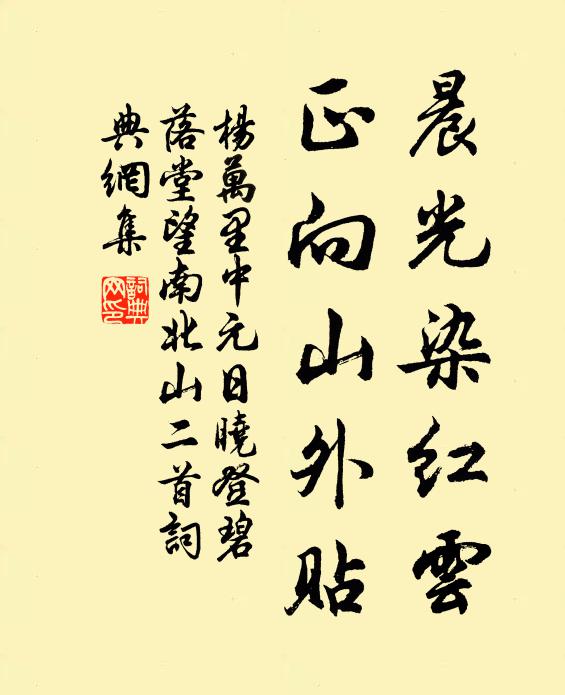 晨光染红雲
正向山外貼
楊萬里中元日曉登碧
落堂望南北山二首詞
典網集
詞典
网印